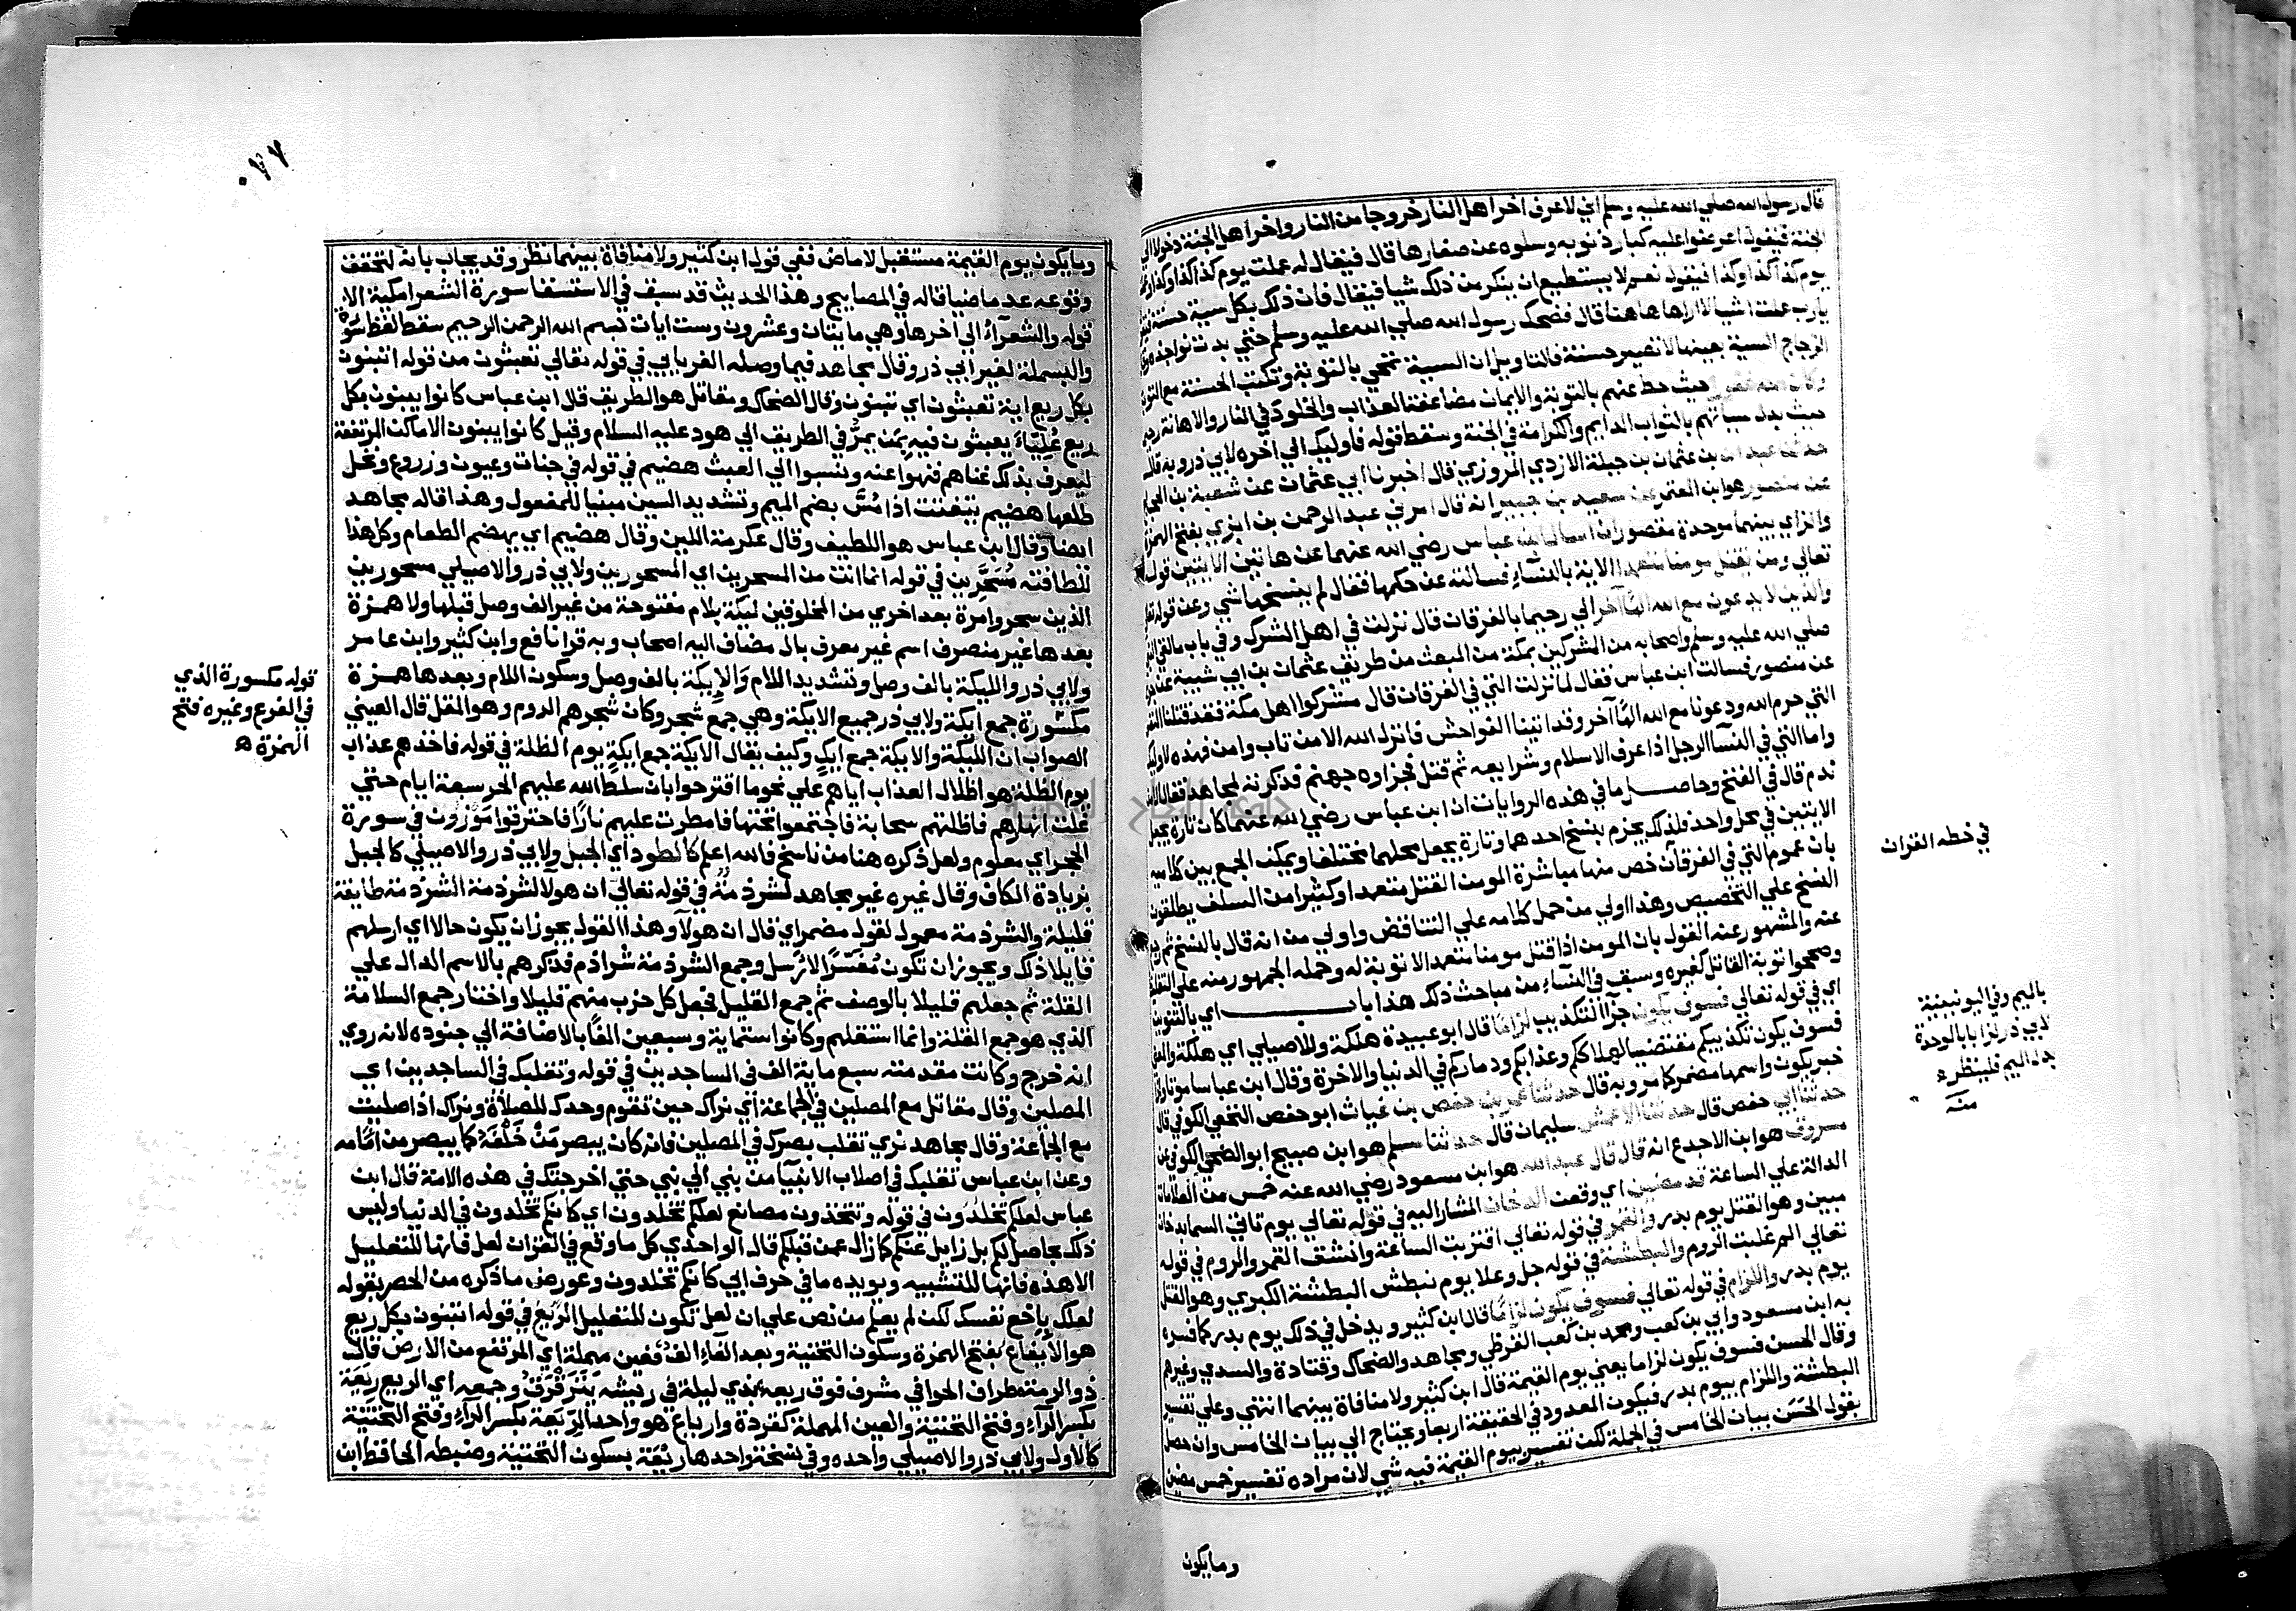 قال رسول الله صلي الله عليه وسلم اني لاعرف اخر اهل النار خروجا من النار واخر اهل الجنة دخولا الي
الجنة فيقول اعرضوا عليه كبار ذنوبه وسلوه عن صغارها قال فيقال له عملت يوم كذا كذا وكذا
يوم كذا كذا وكذا فيقول نعم لا يستطيع ان ينكر من ذلك شيا فيقال فان ذلك بكل سية حسنة
يارب عملت اشيا لا اراها هاهنا قال فضحك رسول الله صلي الله عليه وسلم حتي بدت نواجذه
الزجاج السية بعينها لا تصير حسنة فالتاويل ان السية تمحي بالتوبة وتكتب الحسنة مع التوبة
حيث حط عنهم بالتوبة والايمان مضاعفة العذاب والخلود في النار والاهانة
حيث بدل سياتهم بالثواب الدايم والكرامة في الجنة وسقط قوله فاوليك الي اخره لابي ذر وبه قال
حدثنا عبدان بن عثمان بن جبلة الازدي المروزي قال اخبرنا ابي عثمان عن شعبة بن الحجاج
عن منصور هو ابن المعتمر عن سعيد بن جبير انه قال امرني عبد الرحمن بن ابزي بفتح الهمزة
والزاي بينهما موحدة مقصورا ان اسال ابن عباس رضي الله عنهما عن هاتين الايتين قوله
تعالي ومن يقتل مومنا متعمدا الاية بالنسآء فسالته عن حكمها فقال لم ينسخها شي وعن قوله
والذين لا يدعون مع الله الهًا آخر الي رحيما بالفرقان قال نزلت في اهل الشرك وفي باب ما لقي النبي
صلي الله عليه وسلم واصحابه من المشركين بمكة من المبعث من طريق عثمان بن ابي شيبة عن
عن منصور فسالت ابن عباس فقال لما نزلت التي في الفرقان قال مشركوا اهل مكة فقد قتلنا النفس
التي حرم الله ودعونا مع الله الهًا آخر وقد اتينا الفواحش فانزل الله الا من تاب وامن فهذه لاوليك
واما التي في النسآ الرجل اذا عرف الاسلام وشرايعه ثم قتل فجزاوه جهنم فذكرته لمجاهد فقال الا من
ندم قال في الفتح وحاصل ما في هذه الروايات ان ابن عباس رضي الله عنهما كان تارة يجعل
الايتين في محل واحد فلذلك يجزم بنسخ احدهما وتارة يجعل محلهما مختلفا ويمكن الجمع بين كلاميه
بان عموم التي في الفرقان خص منها مباشرة المومن القتل متعمدا وكثير من السلف يطلقون
النسخ علي التخصيص وهذا اولي من حمل كلامه علي التناقض واولي من انه قال بالنسخ ثم رجع
عنه والمشهور عنه القول بان المومن اذا قتل مومنا متعمدا لا توبة له وحمله الجمهور منه علي التغليظ
وصححوا توبة القاتل كغيره وسبق في النسآء من مباحث ذلك هذا باب اي بالتنوين
اي في قوله تعالي فسوف يكون جزآ التكذيب لزامًا قال ابو عبيدة هلكة وللاصيلي اي هلكة
فسوف يكون تكذيبكم مقتضيا لهلاككم وعذابكم ودماركم في الدنيا والاخرة وقال ابن عباس موتا
خبر يكون واسمها مضمر كما مر وبه قال حدثنا عمر بن حفص بن غياث ابو حفص النخعي الكوفي قال
حدثنا ابي حفص قال حدثنا الاعمش سليمان قال حدثنا مسلم هو ابن صبيح ابو الضحي الكوفي عن
مسروق هو ابن الاجدع انه قال قال عبد الله هو ابن مسعود رضي الله عنه خمس من العلامات
الدالة علي الساعة قد مضين اي وقعن الدخان المشار اليه في قوله تعالي يوم تاتي السما بدخان
مبين وهو القتل يوم بدر والقمر في قوله تعالي اقتربت الساعة وانشق القمر والروم في قوله
تعالي الم غلبت الروم والبطشة في قوله جل وعلا يوم نبطش البطشة الكبري وهو القتل
يوم بدر واللزام في قوله تعالي فسوف يكون لزامًا قال ابن كثير ويدخل في ذلك يوم بدر كما فسره
به ابن مسعود وابي بن كعب ومحمد بن كعب القرظي ومجاهد والضحاك وقتادة والسدي وغيرهم
وقال الحسن فسوف يكون لزاما يعني يوم القيمة قال ابن كثير ولا منافاة بينهما انتهي وعلي تفسير
البطشة واللزام بيوم بدر فيكون المعدود في الحقيقة اربعا ويحتاج الي بيان الخامس وان حصل
بقول الحسن بيان الخامس في الجملة لكن تفسيره بيوم القيمة فيه شي لان مراده تفسير خمس مضين
في خطه القران
باليم وفي اليونينية
لابي ذر لزابا بالوحدة
بدل الميم فلينظر
منه
وما يكون
٠٧٧
وما يكون يوم القيمة مستقبل لا ماض ففي قول ابن كثير ولا منافاة بينهما نظر وقد يجاب بانه لتحقق
وقوعه عد ماضيا قاله في المصابيح وهذا الحديث قد سبق في الاستسقا سورة الشعرا مكية الا
قوله والشعرآء الي اخرها وهي مايتان وعشرون وست ايات بسم الله الرحمن الرحيم سقط لفظ سورة
والبسملة لغير ابي ذر وقال مجاهد فيما وصله الفريابي في قوله تعالي تعبثون من قوله اتبنون
بكل ريع اية تعبثون اي تبنون وقال الضحاك ومقاتل هو الطريق قال ابن عباس كانوا يبنون بكل
ريع عَلَمًا يعبثون فيه بمن يمرّ في الطريق الي هود عليه السلام وقيل كانوا يبنون الاماكن المرتفعة
ليعرف بذلك غناهم فنهوا عنه ونسبوا الي العبث هضيم في قوله في جنات وعيون وزروع ونخل
طلعها هضيم يتفتت اذا مُسَّ بضم الميم وتشديد السين مبنيا للمفعول وهذا قاله مجاهد
ايضا وقال ابن عباس هو اللطيف وقال عكرمة اللين وقال هضيم اي يهضم الطعام وكل هذا
للطافته مُسَحَّرِين في قوله انما انت من المسحرين اي المسحورين ولابي ذر والاصيلي مسحورين
الذين سحروا مرة بعد اخري من المخلوقين ليكة بلام مفتوحة من غير الف وصل قبلها ولا همزة
بعدها غير منصرف اسم غير معرف بال مضاف اليه اصحاب وبه قرا نافع وابن كثير وابن عامر
ولابي ذر والليكة بالف وصل وتشديد اللام وَالايكة بالف وصل وسكون اللام وبعدها همزة
مكسورة جمع ايكة ولابي ذر جميع الايكة وهي جمع شجر وكان شجرهم الدوم وهو المقل قال العيني
الصواب ان الليكة والايكة جمع ايك وكيف يقال الايكة جمع ايكةٍ يوم الظلة في قوله فاخذهم عذاب
يوم الظلة هو اظلال العذاب اياهم علي نحو ما اقترحوا بان سلط الله عليهم الحر سبعة ايام حتي
غلت انهارهم فاظلتهم سحابة فاجتمعوا تحتها فامطرت عليهم نارًا فاحترقوا مَوْزُون في سورة
الحجر اي معلوم ولعل ذكره هنا من ناسخ فالله اعلم كالطود اي الجبل ولابي ذر والاصيلي كالجبل
بزيادة الكاف وقال غيره غير مجاهد لشرذمة في قوله تعالي ان هولآ لشرذمة الشرذمة طايفة
قليلة والشرذمة معمول لقول مضمر اي قال ان هولآ وهذا القول يجوز ان يكون حالا اي ارسلهم
قايلا ذلك ويجوز ان تكون مُفَسِّرًا لارسل وجمع الشرذمة شراذم فذكرهم بالاسم الدال علي
القلة ثم جعلهم قليلا بالوصف ثم جمع القليل فجعل كل حزب منهم قليلا واختار جمع السلامة
الذي هو جمع القلة وانما استقلهم وكانوا ستماية وسبعين الفًا بالاضافة الي جنوده لانه روي
انه خرج وكانت مقدمته سبع ماية الف في الساجدين في قوله وتقلبك في الساجدين اي
المصلين وقال مقاتل مع المصلين في الجماعة اي نراك حين تقوم وحدك للصلاة ونراك اذا صليت
مع الجماعة وقال مجاهد نري تقلب بصرك في المصلين فانه كان يبصر مَنْ خَلْفَهُ كما يبصر من امامه
وعن ابن عباس تقلبك في اصلاب الانبيآ من نبي الي نبي حتي اخرجتك في هذه الامة قال ابن
عباس لعلكم تخلدُون في قوله وتتخذون مصانع لعلكم تخلدون اي كانكم تخلدون في الدنيا وليس
ذلك بحاصل لكم بل زايل عنكم كما زال عمن قبلكم قال الواحدي كل ما وقع في القران لعل فانها للتعليل
الا هذه فانها للتشبيه ويويده ما في حرف ابي كانكم تخلدون وعورض ما ذكره من الحصر بقوله
لعلك باخع نفسك لكن لم يعلم من نص علي ان لعل تكون للتعليل الرِّيع في قوله اتبنون بكل ريع
هو الايفَاع بفتح الهمزة وسكون التحتية وبعد الفآء الف فعين مهملة اي المرتفع من الارض قال
ذو الرمة طراق الخوافي مشرف فوق ريعه ندي ليلة في ريشه يَتَرَقْرَق وجمعه اي الريع رِيَعَة
بكسر الرآء وفتح التحتية والعين المهملة كقردة وارياع هو واحد الرِّيَعة بكسر الرآء وفتح التحتية
كالاول ولابي ذر والاصيلي واحده وفي نسخة واحدها رِيْعَة بسكون التحتية وضبطه الحافظ ابن
قوله مكسورة الذي
في الفرع وغيره فتح
الهمزة ه